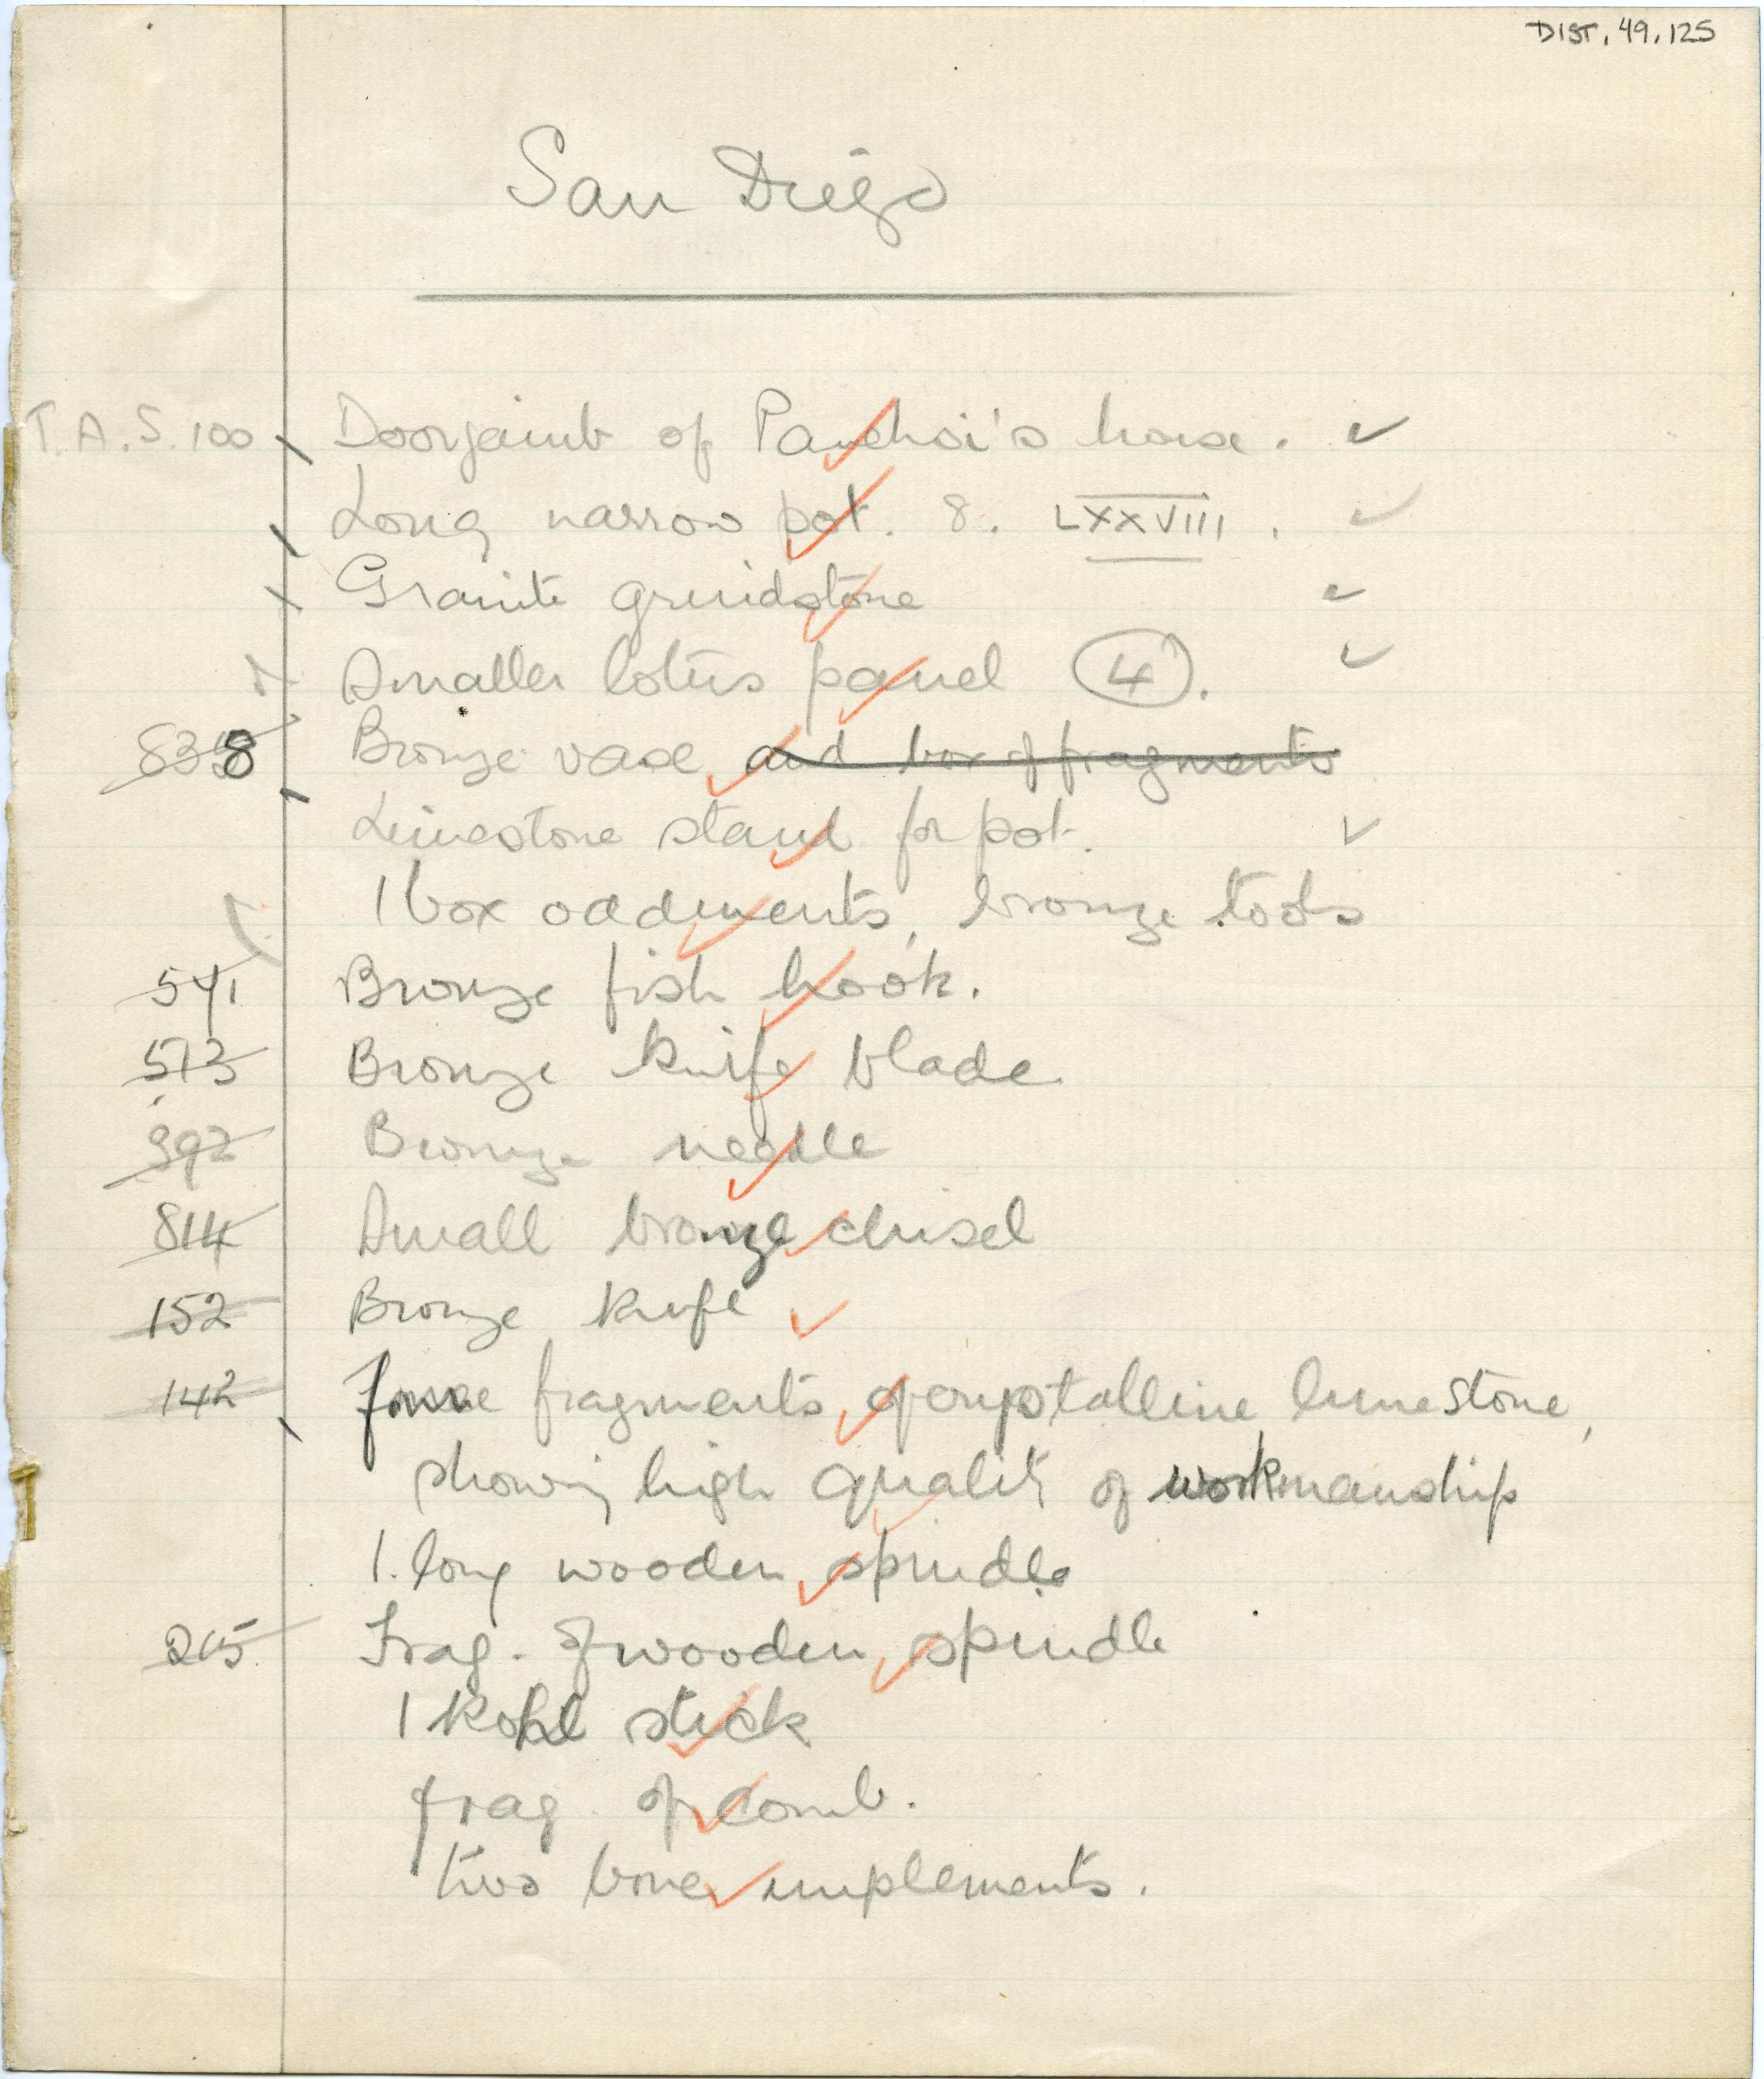 DIST. 49.125
San Diego
T.A.S. 100 Doorjamb of Panehsi's house.
Long narrow pot. 8. LXXVIII.
Granite grindstone
Smaller lotus panel 4.
8 Bronze vase and box of fragments
Limestone stand for pot.
1 box oddments, bronze tools
541 Bronze fish hook.
573 Bronze knife blade.
392 Bronze needle
814 Small bronze chisel
152 Bronze knife
142 fragments of crystalline limestone,
showing high quality of workmanship
1. long wooden spindle
265 Frag. of wooden spindle
1 Kohl stick
frag. of comb.
two bone implements.